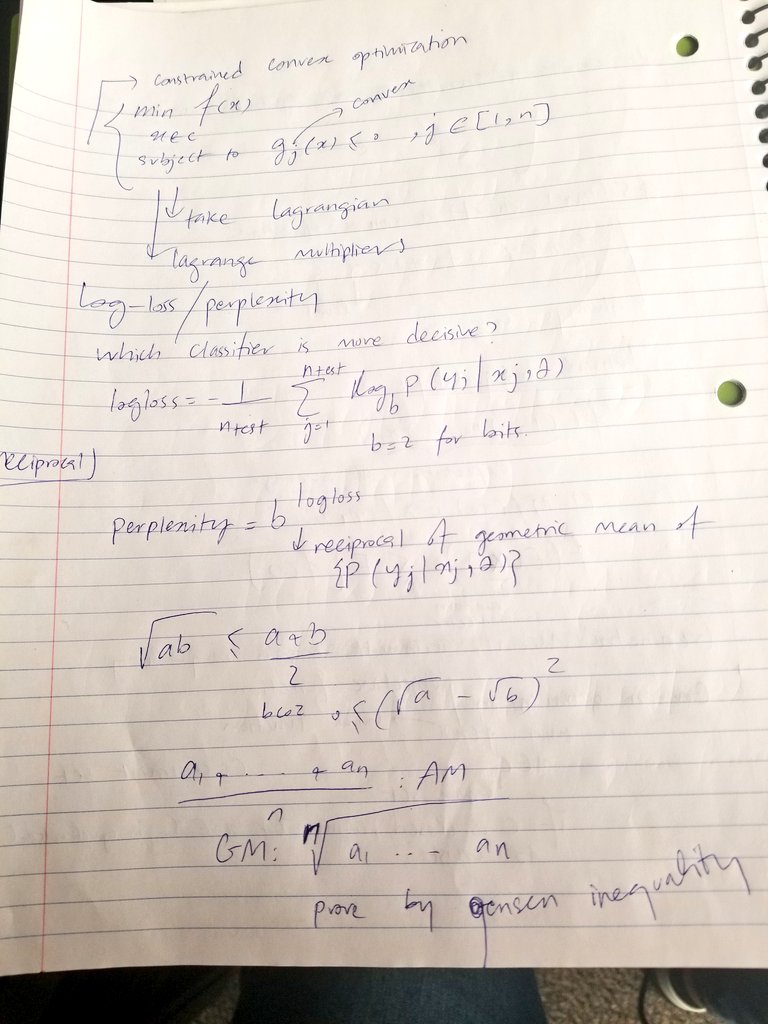 → constrained convex optimization
min f(x) → convex
x∈C
subject to gj(x) ≤ 0 , j ∈ [1, n]
↓ take lagrangian
↓ lagrange multipliers
Log-loss / perplexity
which classifier is more decisive?
logloss = - 1/ntest ntest∑j=1 log_b P(yj | xj, θ)
b=2 for bits.
reciprocal
perplexity = b^logloss
↓ reciprocal of geometric mean of
{P(yj | xj, θ)}
√ab ≤ a+b/2
bcoz 0 ≤ (√a - √b)^2
a1 + .... + an / n : AM
GM: n√a1 ... an
prove by Jensen inequality